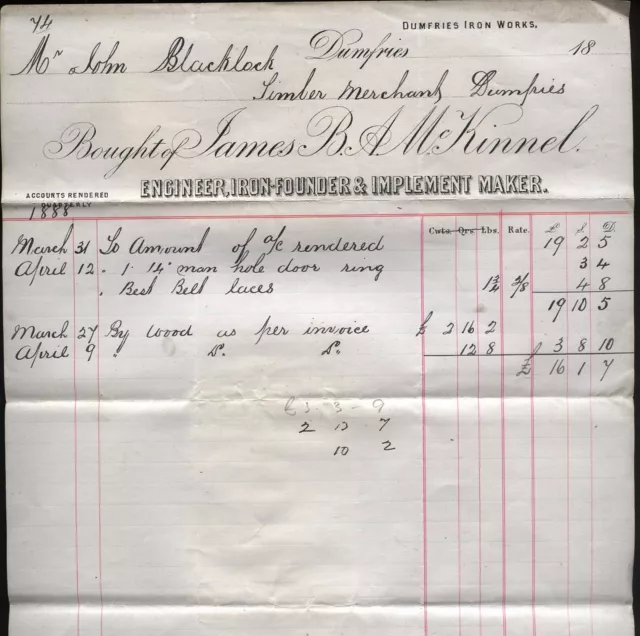 74
DUMFRIES IRON WORKS.
Dumfries 18
Mr John Blacklock
Timber Merchant, Dumfries
Bought of James B. A. McKinnel.
ENGINEER, IRON-FOUNDER & IMPLEMENT MAKER.
ACCOUNTS RENDERED
QUARTERLY.
1888
Cwts. Qrs. Lbs. Rate. £ S. D.
March 31 To Amount of a/c rendered 19 2 5
April 12 " 1 14" man hole door ring 3 4
" Best Belt laces 1¾ 2/8 4 8
19 10 5
March 27 By Wood as per invoice £ 2 16 2
April 9 " Do. Do. 12 8 3 8 10
£ 16 1 7
£3 - 3 - 9
2 13 7
10 2